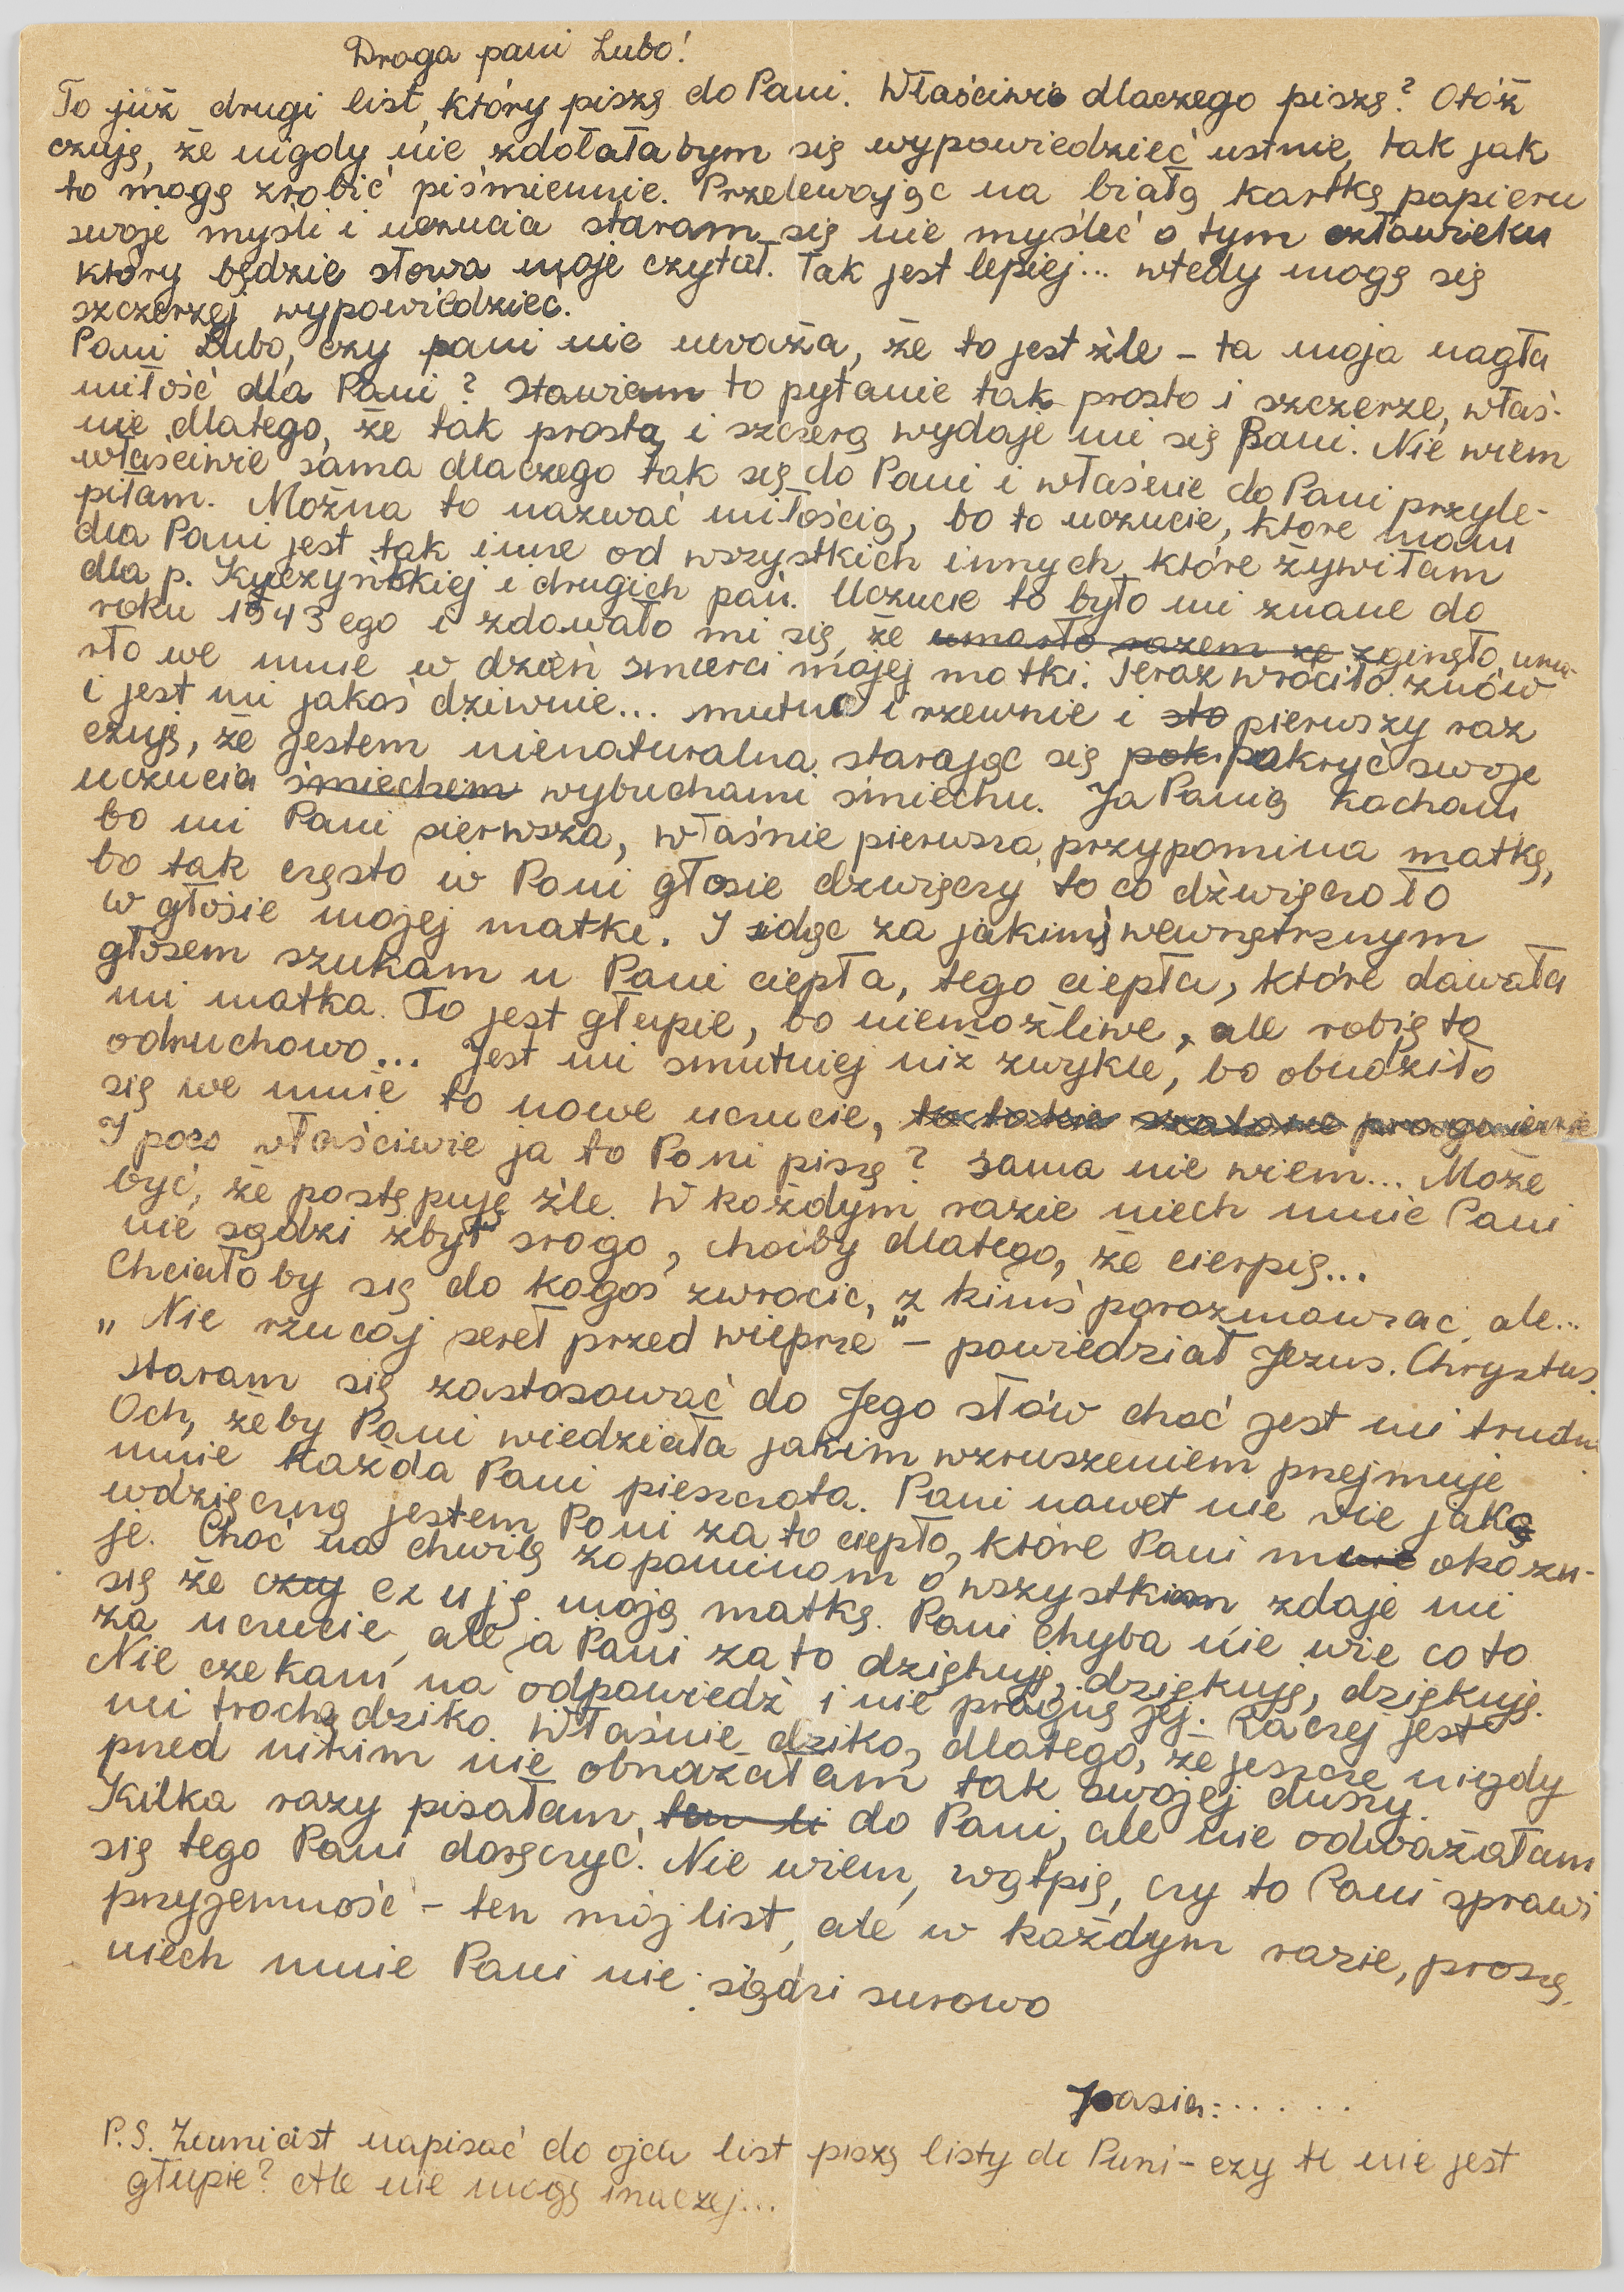 Droga pani Lubo!
To już drugi list, który piszę do Pani. Właściwie dlaczego piszę? Otóż
czuję, że nigdy nie zdołałabym się wypowiedzieć ustnie, tak jak
to mogę zrobić piśmiennie. Przelewając na białą kartkę papieru
swoje myśli i uczucia staram się nie myśleć o tym człowieku
który będzie słowa moje czytał. Tak jest lepiej... wtedy mogę się
szczerzej wypowiedziec.
Pani Lubo, czy pani nie uważa, że to jest źle – ta moja nagła
miłość dla Pani? Stawiam to pytanie tak prosto i szczerze, właś-
nie dlatego, że tak prostą i szczerą wydaje mi się Pani. Nie wiem
właściwie sama dlaczego tak się do Pani i właśnie do Pani przyle-
piłam. Można to nazwać miłością, bo to uczucie, które mam
dla Pani jest tak inne od wszystkich innych, które żywiłam
dla p. Kyczyńskiej i drugich pań. Uczucie to było mi znane do
roku 1943 ego i zdawało mi się, że umarło razem ze zginęło, uma-
rło we mnie w dzień śmierci mojej matki. Teraz wróciło znów
i jest mi jakoś dziwnie... smutno i rzewnie i sto pierwszy raz
czuję, że jestem nienaturalna starając się pok pokryć swoje
uczucia śmiechem wybuchami śmiechu. Ja Panią kocham
bo mi Pani pierwsza, właśnie pierwsza przypomina matkę,
bo tak często w Pani głosie dźwięczy to co dźwięczało
w głosie mojej matki. I idąc za jakimś wewnętrznym
głosem szukam u Pani ciepła, tego ciepła, które dawała
mi matka. To jest głupie, bo niemożliwe, ale robię to
odruchowo... Jest mi smutniej niż zwykle, bo obudziło
się we mnie to nowe uczucie, to takie szalone pragnienie
I poco właściwie ja to Pani piszę? Sama nie wiem... Może
być, że postępuję źle. W każdym razie niech mnie Pani
nie sądzi zbyt srogo, choćby dlatego, że cierpię...
Chciałoby się do kogoś zwrocic, z kimś porozmawiac, ale...
„Nie rzucaj pereł przed wieprze" – powiedział Jezus. Chrystus.
Staram się zastosować do Jego słów choć jest mi trudno
Och, żeby Pani wiedziała jakim wzruszeniem przejmuje
mnie każda Pani pieszczota. Pani nawet nie wie jaką
wdzięczną jestem Pani za to ciepło, które Pani mnie okazu-
je. Choć na chwilę zapominam o wszystkim, zdaje mi
się że czuj czuję moją matkę. Pani chyba nie wie co to
za uczucie, ale ja Pani za to dziękuję, dziękuję, dziękuję.
Nie czekam na odpowiedź i nie pragnę jej. Raczej jest
mi trochę dziko. Właśnie dziko, dlatego, że jeszcze nigdy
przed nikim nie obnażałam tak swojej duszy.
Kilka razy pisałam, ten li do Pani, ale nie odważałam
się tego Pani doręczyć. Nie wiem, wątpię, czy to Pani sprawi
przyjemność – ten mój list, ale w każdym razie, proszę,
niech mnie Pani nie sądzi surowo
Joasia:......
P.S. Zamiast napisać do ojca list piszę listy do Pani – czy to nie jest
głupie? Ale nie mogę inaczej...